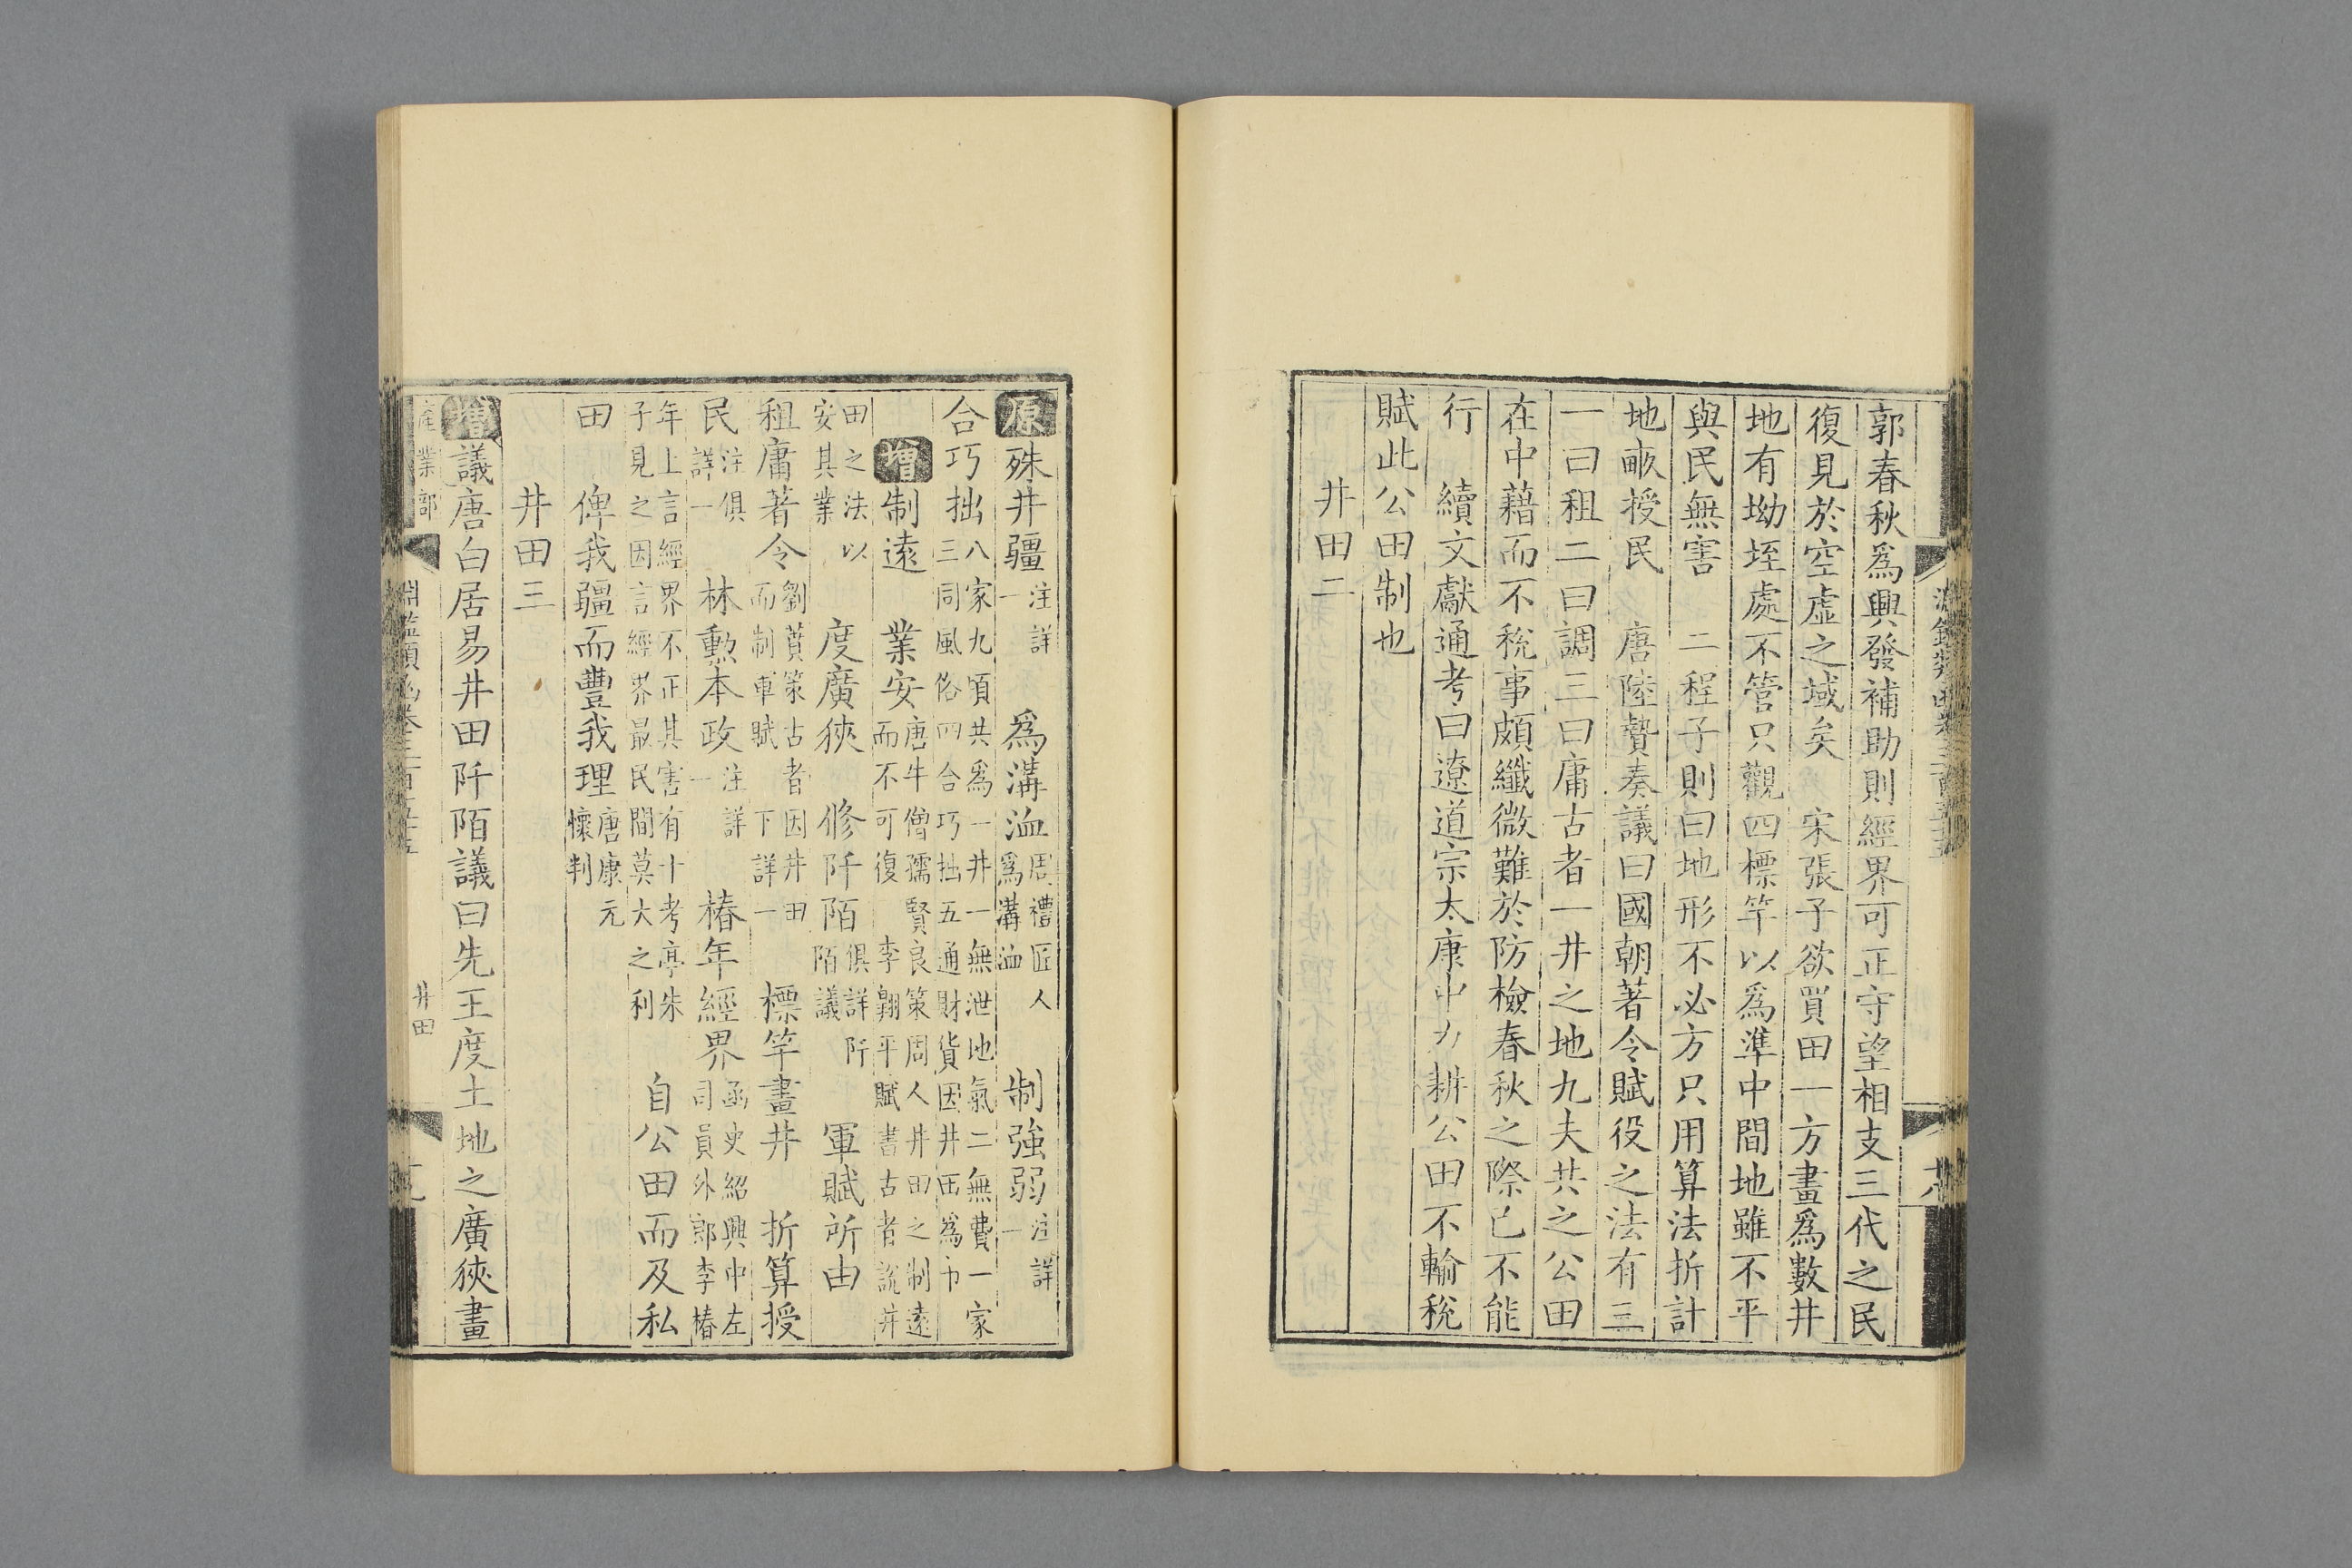 郭春秋爲興發補助則經界可正守望相支三代之民
復見於空虛之域矣　宋張子欲買田一方畫爲數井
地有坳垤處不管只觀四標竿以爲準中間地雖不平
與民無害　二程子則曰地形不必方只用算法折計
地畝授民　唐陸贄奏議曰國朝著令賦役之法有三
一曰租二曰調三曰庸古者一井之地九夫共之公田
在中藉而不稅事頗纖微難於防檢春秋之際已不能
行　續文獻通考曰遼道宗太康中力耕公田不輸稅
賦此公田制也
井田二
原殊井疆注詳一　爲溝洫周禮匠人爲溝洫　制強弱注詳一
合巧拙八家九頃共爲一井一無泄地氣二無費一家三同風俗四合巧拙五通財貨因井田爲市
增制遠　業安唐牛僧孺賢良策周人井田之制遠而不可復　李翺平賦書古者說井
田之法以安其業　度廣狹　修阡陌俱詳阡陌議　軍賦所由
租庸著令劉蕡策古者因井田而制軍賦下詳一　標竿畫井　折算授
民注俱詳一　林勲本政注詳一　椿年經界函史紹興中左司員外郎李椿
年上言經界不正其害有十考亭朱子見之因言經界最民間莫大之利　自公田而及私
田　俾我疆而豐我理唐康元懷判
井田三
增議唐白居易井田阡陌議曰先王度土地之廣狹畫
產業部
淵鑑類函卷三百五十五
井田